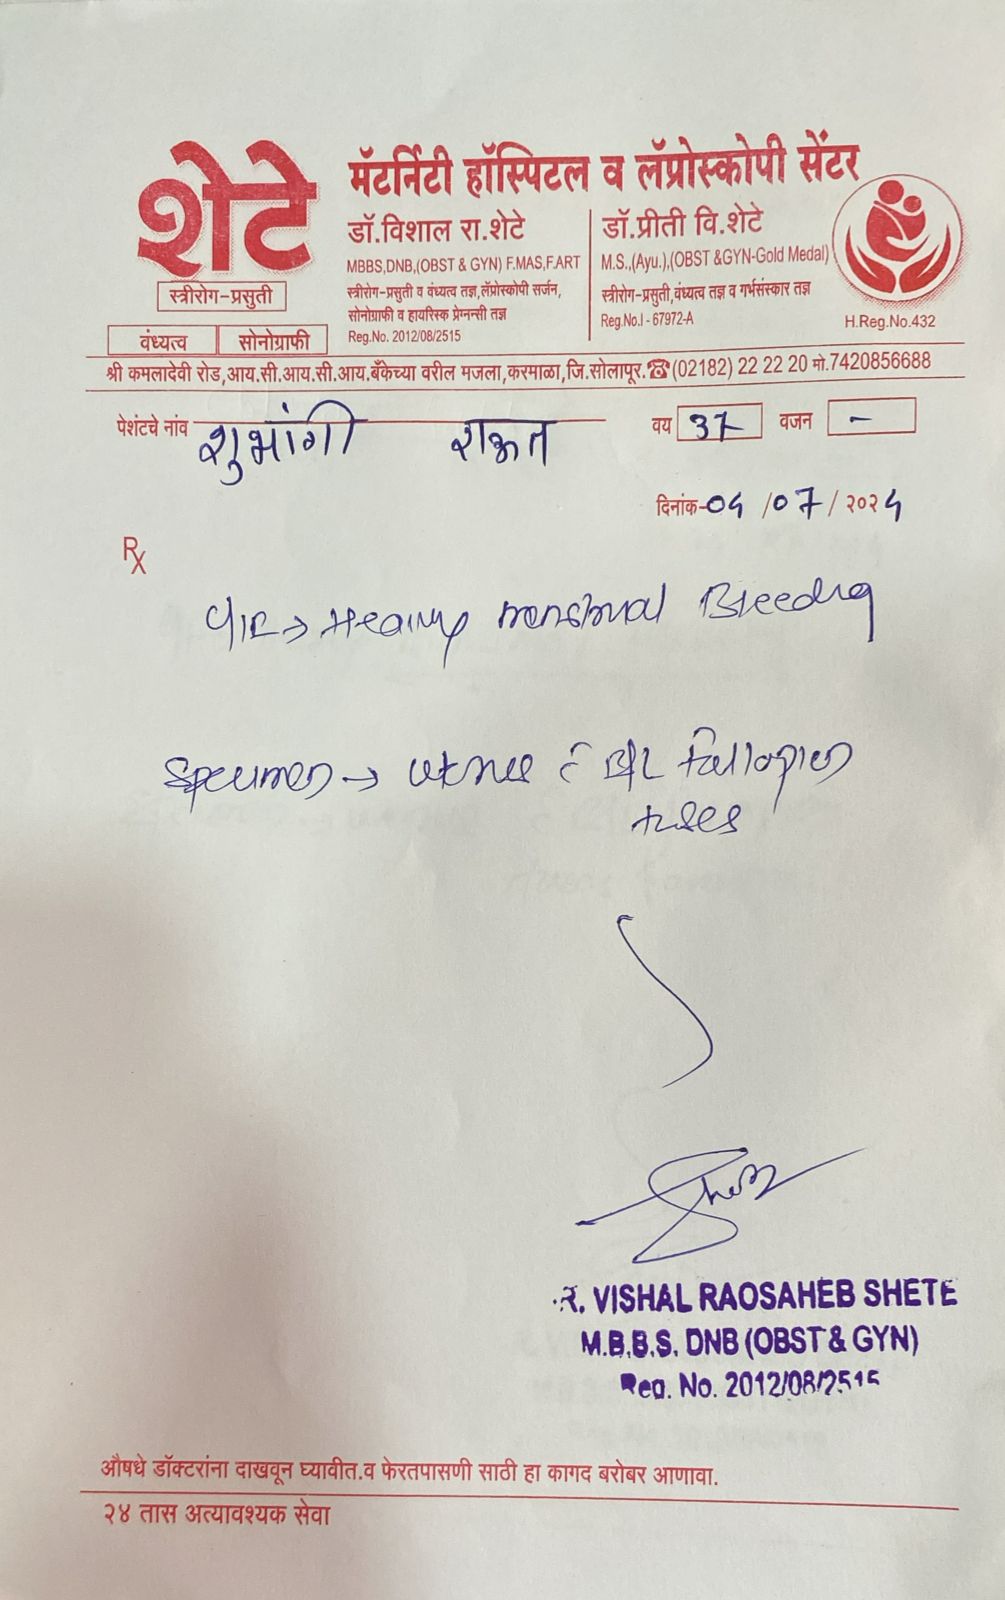 शेटे
स्त्रीरोग-प्रसुती
वंध्यत्व सोनोग्राफी
मॅटर्निटी हॉस्पिटल व लॅप्रोस्कोपी सेंटर
डॉ.विशाल रा.शेटे
MBBS,DNB,(OBST & GYN) F.MAS,F.ART
स्त्रीरोग-प्रसुती व वंध्यत्व तज्ञ,लॅप्रोस्कोपी सर्जन,
सोनोग्राफी व हायरिस्क प्रेग्नन्सी तज्ञ
Reg.No. 2012/08/2515
डॉ.प्रीती वि.शेटे
M.S.,(Ayu.),(OBST &GYN-Gold Medal)
स्त्रीरोग-प्रसुती,वंध्यत्व तज्ञ व गर्भसंस्कार तज्ञ
Reg.No.I - 67972-A
H.Reg.No.432
श्री कमलादेवी रोड,आय.सी.आय.सी.आय.बँकेच्या वरील मजला,करमाळा,जि.सोलापूर.☎(02182) 22 22 20 मो.7420856688
पेशंटचे नांव शुभांगी वय 37 वजन -
दिनांक- /07/२०२
Rx
Heavy menstrual Bleeding
Specimen → uterus c̄ B/L fallopian
tubes
R. VISHAL RAOSAHEB SHETE
M.B.B.S. DNB (OBST & GYN)
Reg. No. 2012/08/2515
औषधे डॉक्टरांना दाखवून घ्यावीत.व फेरतपासणी साठी हा कागद बरोबर आणावा.
२४ तास अत्यावश्यक सेवा